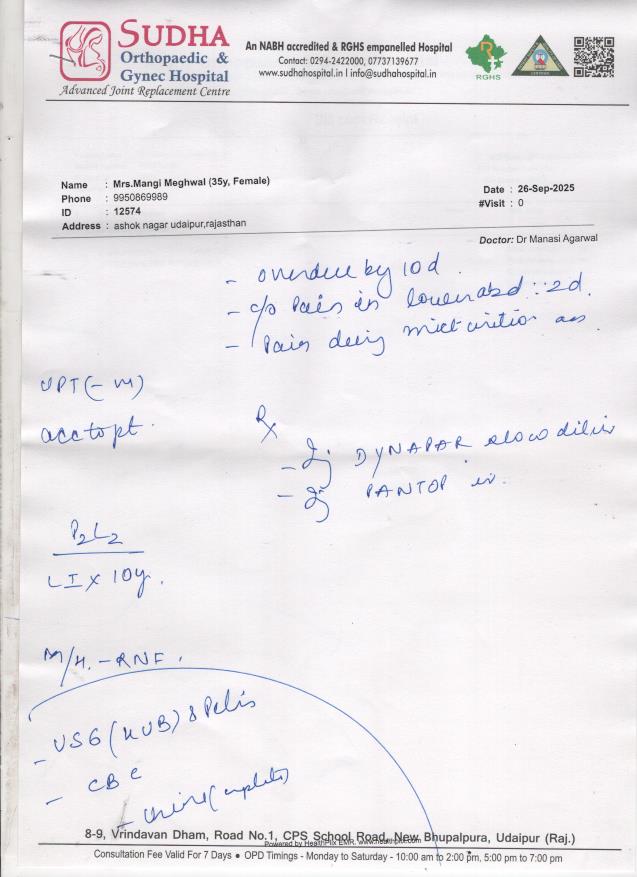 SUDHA
Orthopaedic &
Gynec Hospital
Advanced Joint Replacement Centre
An NABH accredited & RGHS empanelled Hospital
Contact: 0294-2422000, 07737139677
www.sudhahospital.in | info@sudhahospital.in
RGHS
Name : Mrs.Mangi Meghwal (35y, Female)
Phone : 9950869989
ID : 12574
Address : ashok nagar udaipur,rajasthan
Date : 26-Sep-2025
#Visit : 0
Doctor: Dr Manasi Agarwal
- overdue by 10 d.
- c/o Pain in lower abd :: 2d.
- Pain during micturition
UPT (-ve)
acc to pt.
Rx
- Inj DYNAPAR slow
- Inj PANTOP iv.
P2L2
LI x 10y.
M/H. - RNF.
- USG (KUB) & Pelvis
- CBC
- Urine (complete)
8-9, Vrindavan Dham, Road No.1, CPS School Road, New Bhupalpura, Udaipur (Raj.)
Powered by HealthPlix EMR. www.healthplix.com
Consultation Fee Valid For 7 Days • OPD Timings - Monday to Saturday - 10:00 am to 2:00 pm, 5:00 pm to 7:00 pm